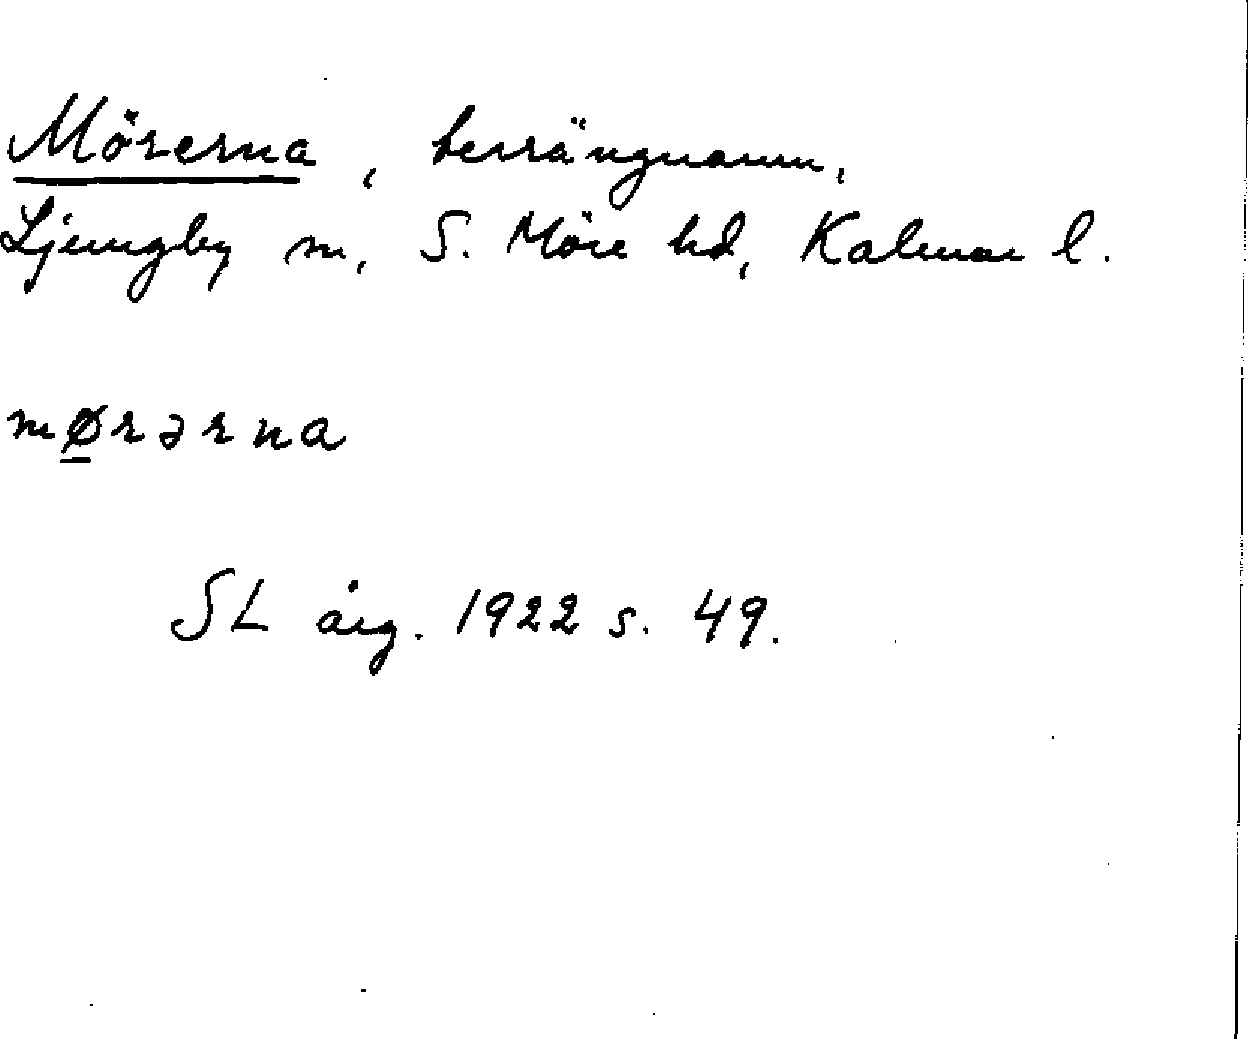 Mörerna, terrängnamn,
Ljungby sn, S. Möre hd, Kalmar l.
mørərna
SL årg. 1922 s. 49.